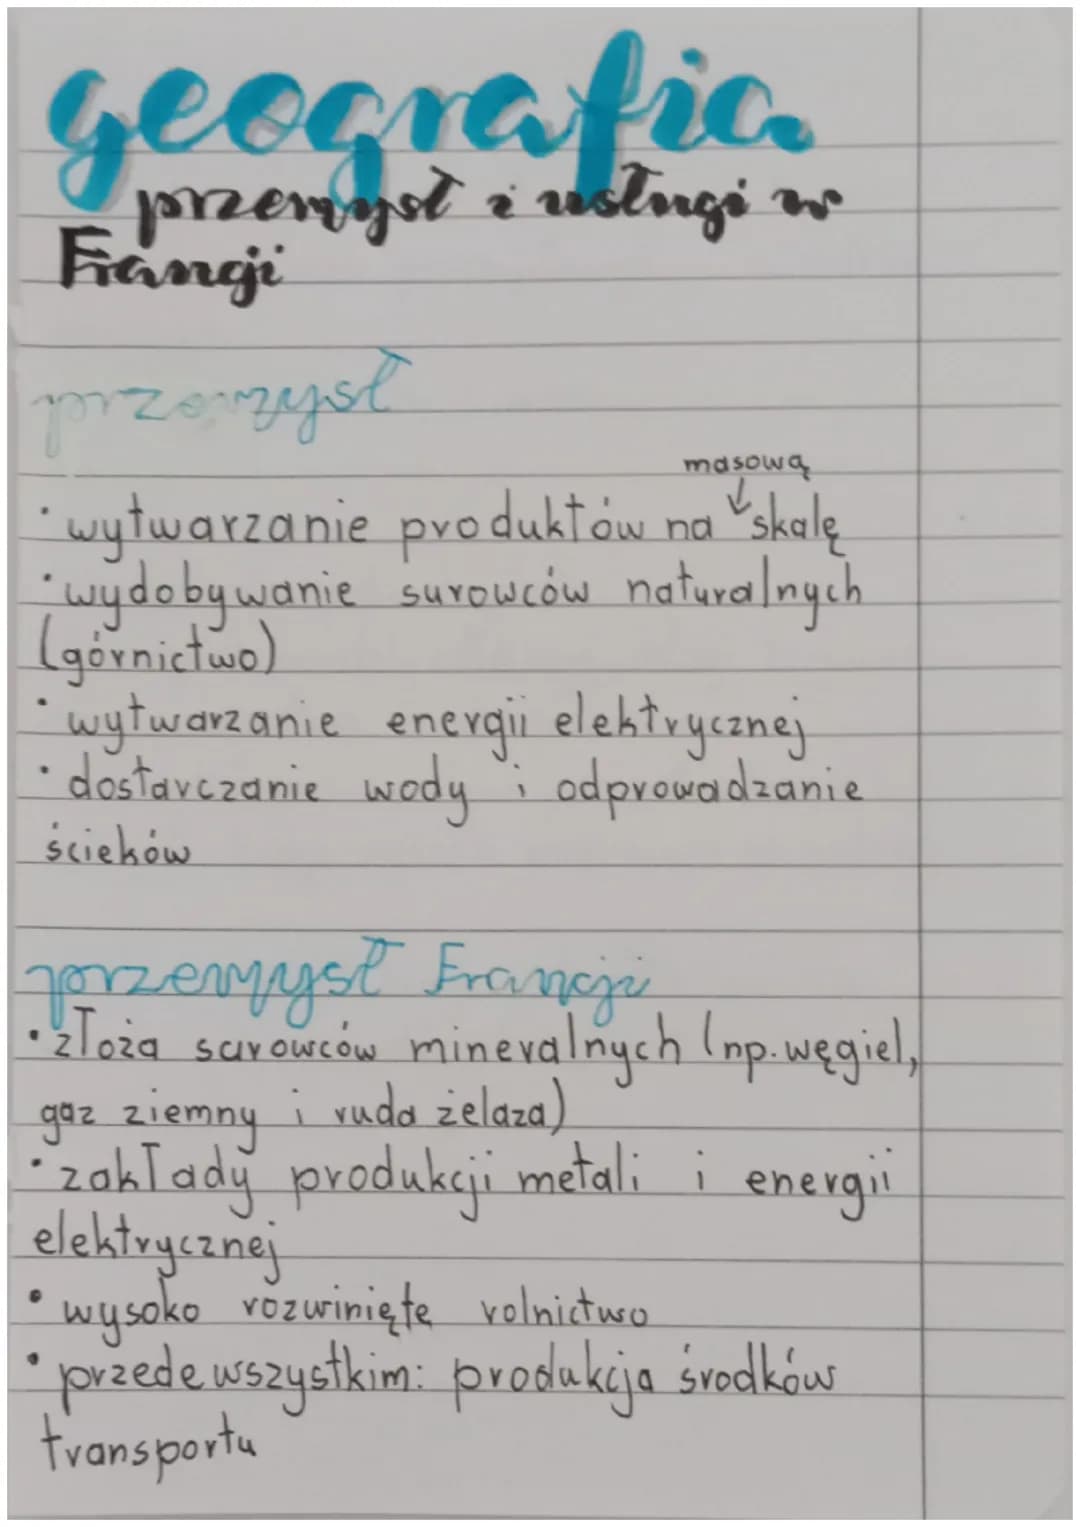 geografia
przemysł i usługi w
Francji
przemysł
masową
↓
• wytwarzanie produktów na skalę
• wydobywanie surowców naturalnych
(górnictwo)
• wytwarzanie energii elektrycznej
• dostarczanie wody i odprowadzanie
ścieków
przemysł Francji
• złoża surowców mineralnych (np. węgiel,
gaz ziemny i ruda żelaza)
• zakłady produkcji metali i energii
elektrycznej
• wysoko rozwinięte rolnictwo
• przede wszystkim: produkcja środków
transportu